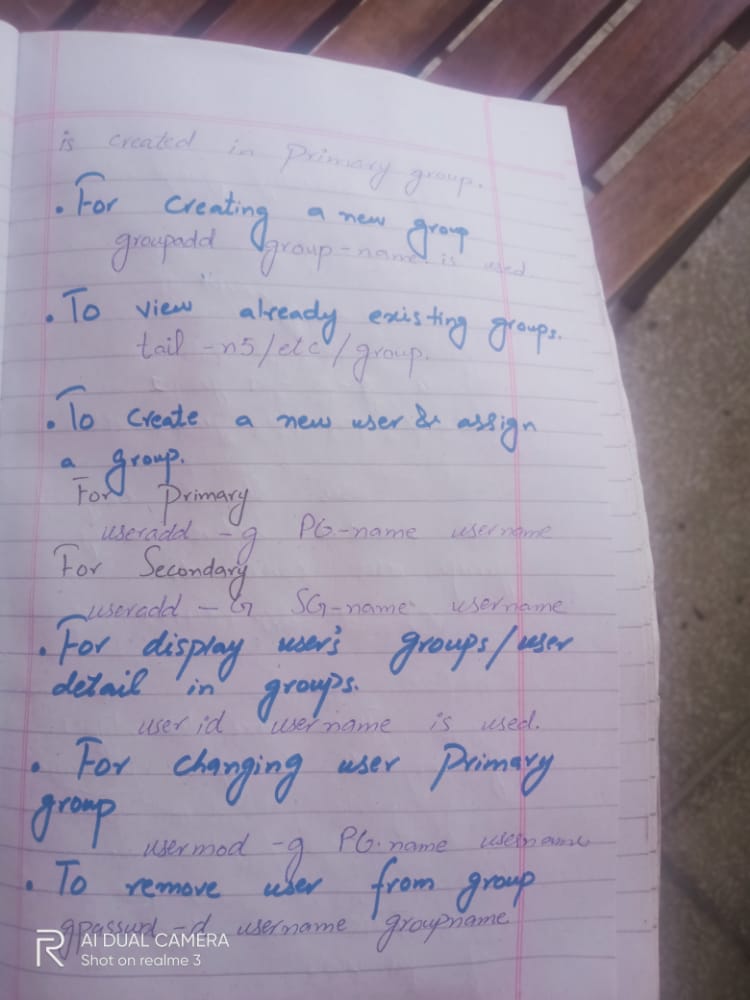 is created in Primary group.
• For creating a new group
groupadd group-name is used.
• To view already existing groups.
tail -n5/etc/group.
• To create a new user & assign
a group.
For Primary
useradd -g PG-name username
For Secondary
useradd -G SG-name username
• For display user's groups/user
detail in groups.
user id username is used.
• For changing user Primary
group
usermod -g PG.name username
• To remove user from group
gpasswd -d username groupname
R AI DUAL CAMERA
Shot on realme 3